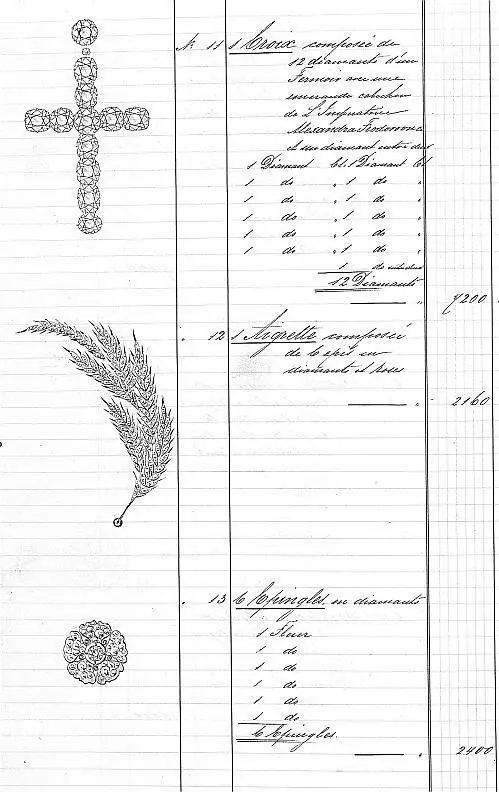 N. 11 1 Croix composée de
12 diamants d'un
Fermoir avec une
émeraude cabochon
de L'Impératrice
Alexandra Feodorovna
et un diamant entre deux
1 Diamant Ct. 1 Diamant Ct
1 do " 1 do "
1 do " 1 do "
1 do " 1 do "
1 do " 1 do "
1 do " 1 do "
1 do
12 Diamants
" 7200
" 12 1 Aigrette composée
de 6 épis en
diamants et roses
" 2160
" 13 6 Epingles en diamants
1 Fleur
1 do
1 do
1 do
1 do
1 do
6 Epingles.
" 2400